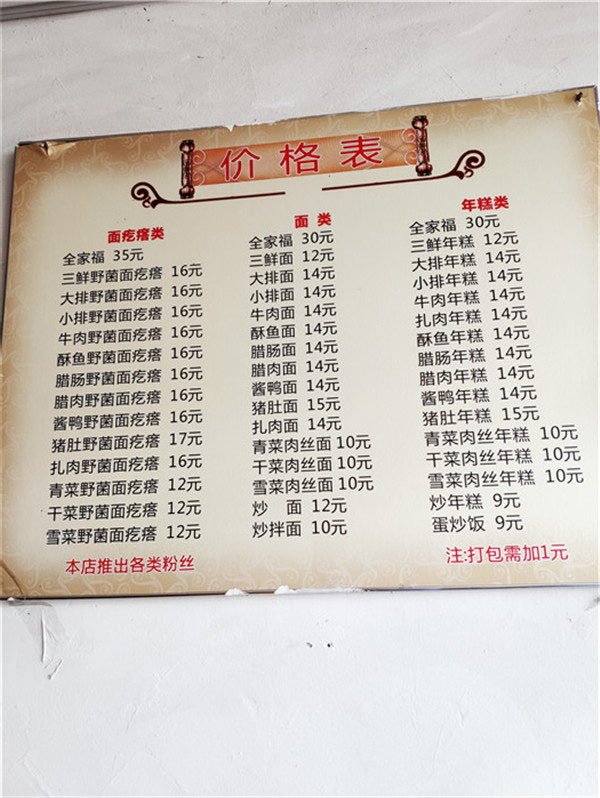 价格表
面疙瘩类
全家福 35元
三鲜野菌面疙瘩 16元
大排野菌面疙瘩 16元
小排野菌面疙瘩 16元
牛肉野菌面疙瘩 16元
酥鱼野菌面疙瘩 16元
腊肠野菌面疙瘩 16元
腊肉野菌面疙瘩 16元
酱鸭野菌面疙瘩 16元
猪肚野菌面疙瘩 17元
扎肉野菌面疙瘩 16元
青菜野菌面疙瘩 12元
干菜野菌面疙瘩 12元
雪菜野菌面疙瘩 12元
本店推出各类粉丝
面 类
全家福 30元
三鲜面 12元
大排面 14元
小排面 14元
牛肉面 14元
酥鱼面 14元
腊肠面 14元
腊肉面 14元
酱鸭面 14元
猪肚面 15元
扎肉面 14元
青菜肉丝面 10元
干菜肉丝面 10元
雪菜肉丝面 10元
炒 面 12元
炒拌面 10元
年糕类
全家福 30元
三鲜年糕 12元
大排年糕 14元
小排年糕 14元
牛肉年糕 14元
扎肉年糕 14元
酥鱼年糕 14元
腊肠年糕 14元
腊肉年糕 14元
酱鸭年糕 14元
猪肚年糕 15元
青菜肉丝年糕 10元
干菜肉丝年糕 10元
雪菜肉丝年糕 10元
炒年糕 9元
蛋炒饭 9元
注:打包需加1元